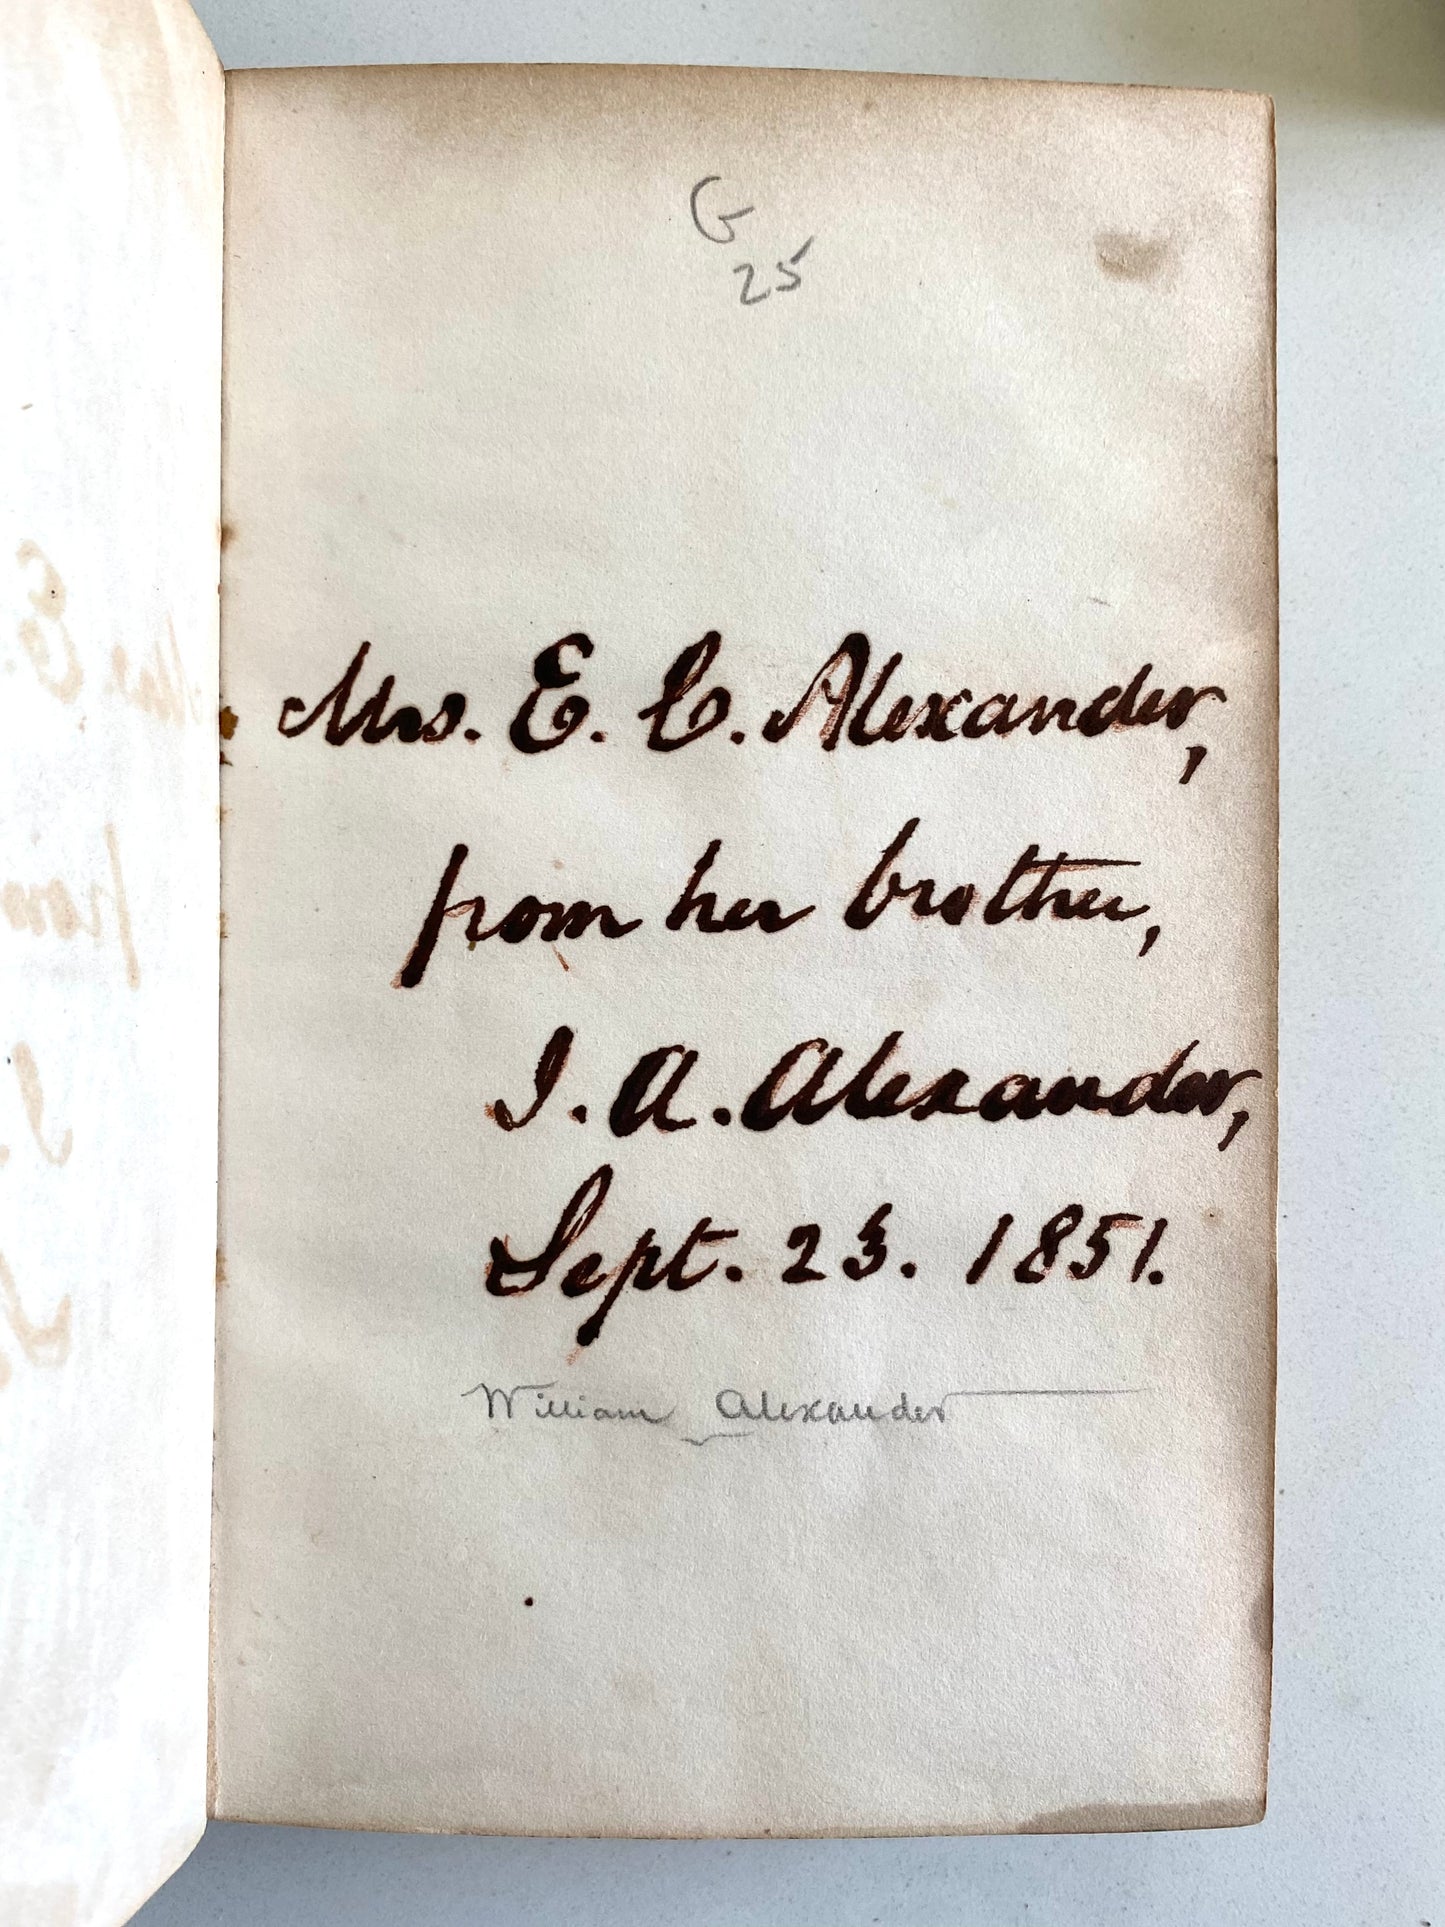 G
25
Mrs. E. C. Alexander,
from her brother,
J. A. Alexander,
Sept. 23. 1851.
William Alexander